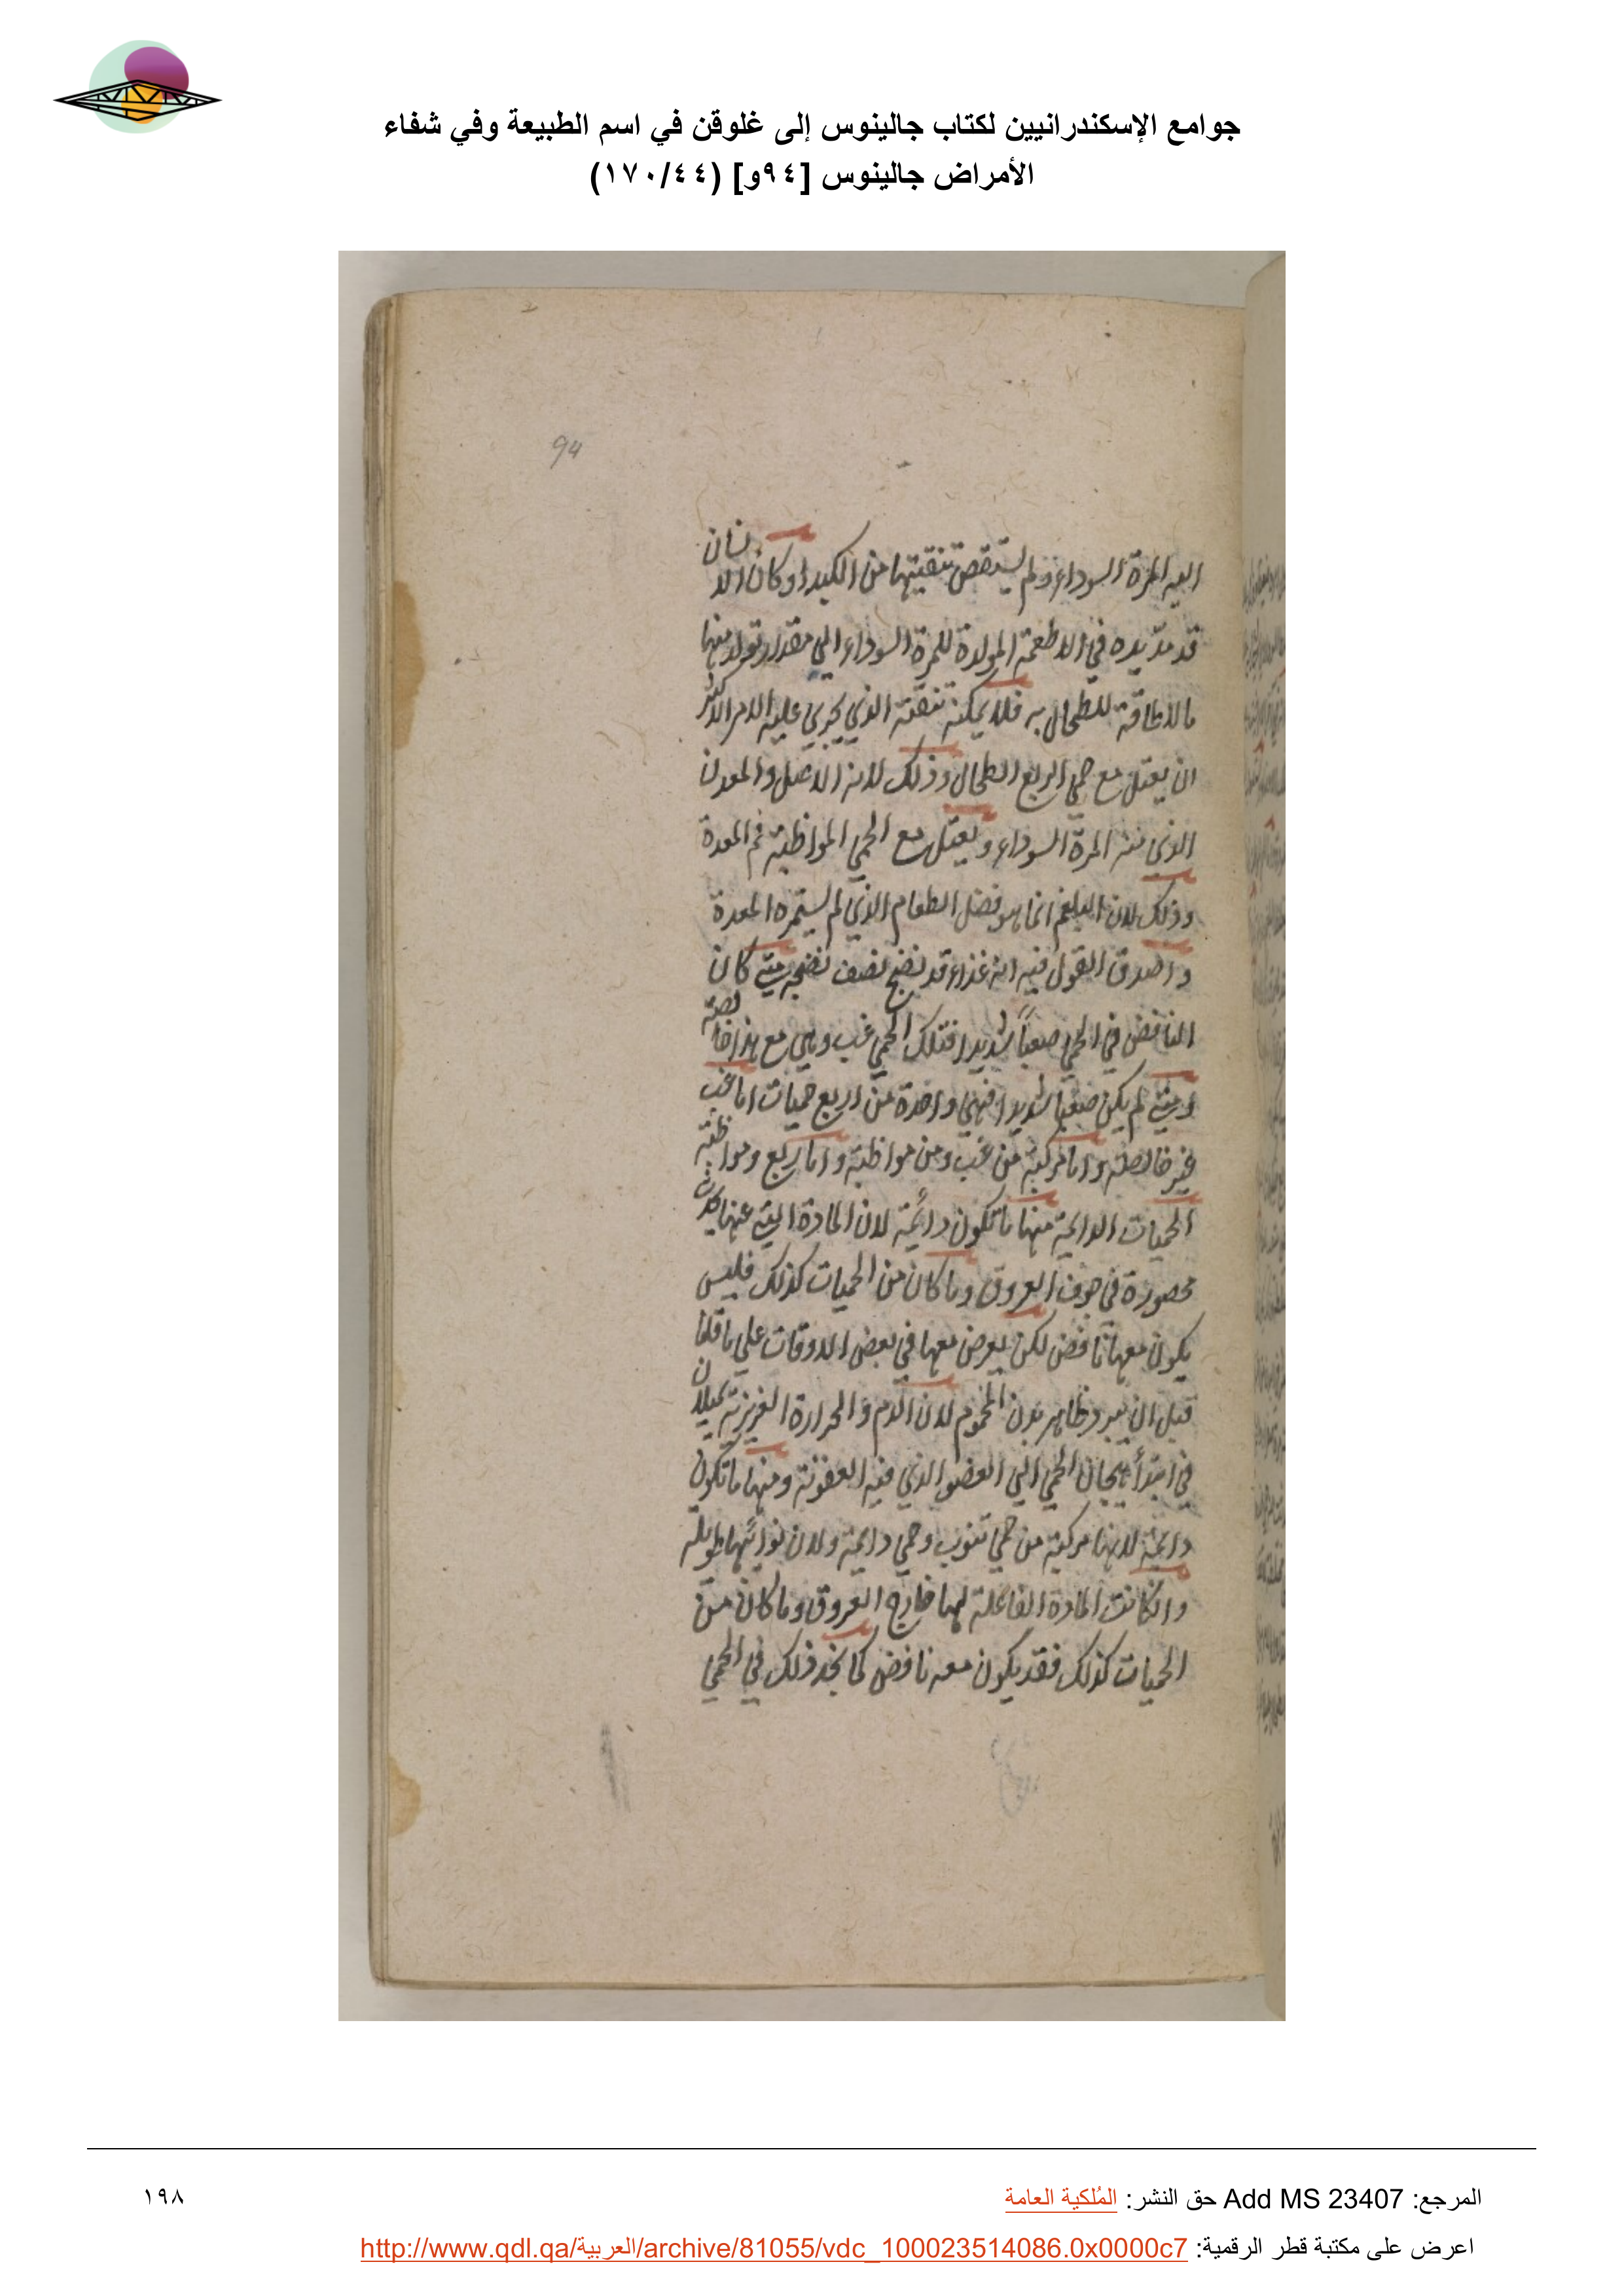 جوامع الإسكندرانيين لكتاب جالينوس إلى غلوقن في اسم الطبيعة وفي شفاء
الأمراض جالينوس [٩٤و] (١٧٠/٤٤)
94
اليه المرة السوداء ولم يستقص تنقيتها من الكبد او كان الانسان
قد مد يده في الاطعمة المولدة للمرة السوداء الي مقدار تولد منها
ما لا طاقة للطحال به فلا يمكنه تنقية الذي يجري عليه الامر الاكثر
ان يعتل مع حمي الربع الطحال وذلك لانه الاصل والمعدن
الذي منه المرة السوداء ويعتل مع الحمي المواظبة فم المعدة
وذلك لان البلغم انما هو فضل الطعام الذي لم يستمره المعدة
واصدق القول فيه انه غذاء قد نضج نصف نضجه متي كان
النافض في الحمي صعباً شديدا فتلك الحمي غب وهي مع هذا خالصة
ومتي لم يكن صعبا شديدا فهي واحدة من اربع حميات اما غب
غير خالصة واما مركبة من غب ومن مواظبة واما ربع ومواظبة
الحميات الدائمة منها ما تكون دائمة لان المادة التي عنها تحدث
محصورة في جوف العروق وما كان من الحميات كذلك فليس
يكون معها نافض لكن يعرض معها في بعض الاوقات علي ما قلنا
قبل ان يبرد ظاهر بدن المحموم لان الدم والحرارة الغريزية يميلان
في ابتدأ هيجان الحمي الي العضو الذي فيه العفونة ومنها ما تكون
دائمة لانها مركبة من حمي تنوب وحمي دائمة ولان نوائبها طويلة
وان كانت المادة الفاعلة لها خارج العروق وما كان من
الحميات كذلك فقد يكون معه نافض كما نجد ذلك في الحمي
المرجع: Add MS 23407 حق النشر: المُلكية العامة
١٩٨
اعرض على مكتبة قطر الرقمية: http://www.qdl.qa/العربية/archive/81055/vdc_100023514086.0x0000c7